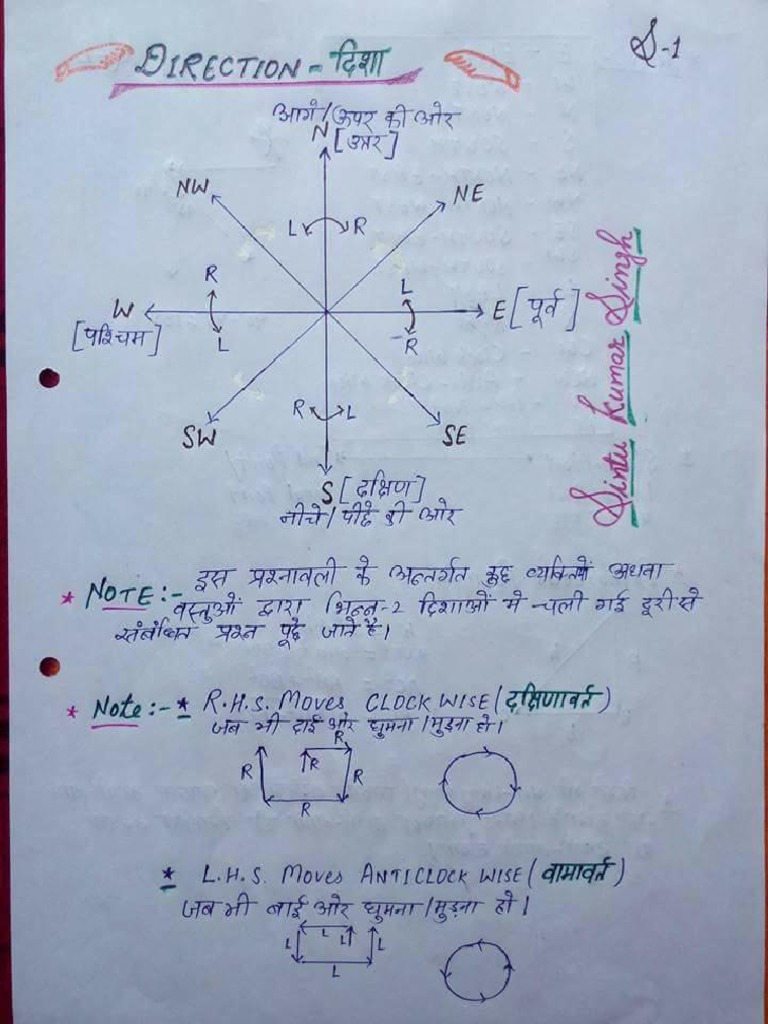 S-1
DIRECTION - दिशा
आगे/ऊपर की ओर
N
[उत्तर]
NW
NE
L R
R
L
W
E [पूर्व]
[पश्चिम]
L
R
R L
SW
SE
S [दक्षिण]
नीचे/पीछे की ओर
Sintu Kumar Singh
* NOTE:- इस प्रश्नावली के अन्तर्गत कुछ व्यक्तियों अथवा
वस्तुओं द्वारा भिन्न-2 दिशाओं में चली गई दूरी से
संबंधित प्रश्न पूछे जाते है।
* Note:- * R.H.S. MOVES CLOCK WISE (दक्षिणावर्त)
जब भी दाई ओर घुमना/मुड़ना हो।
R
R R R
R
* L.H.S. MOVES ANTICLOCK WISE (वामावर्त)
जब भी बाई ओर घुमना/मुड़ना हो।
L L L L
L